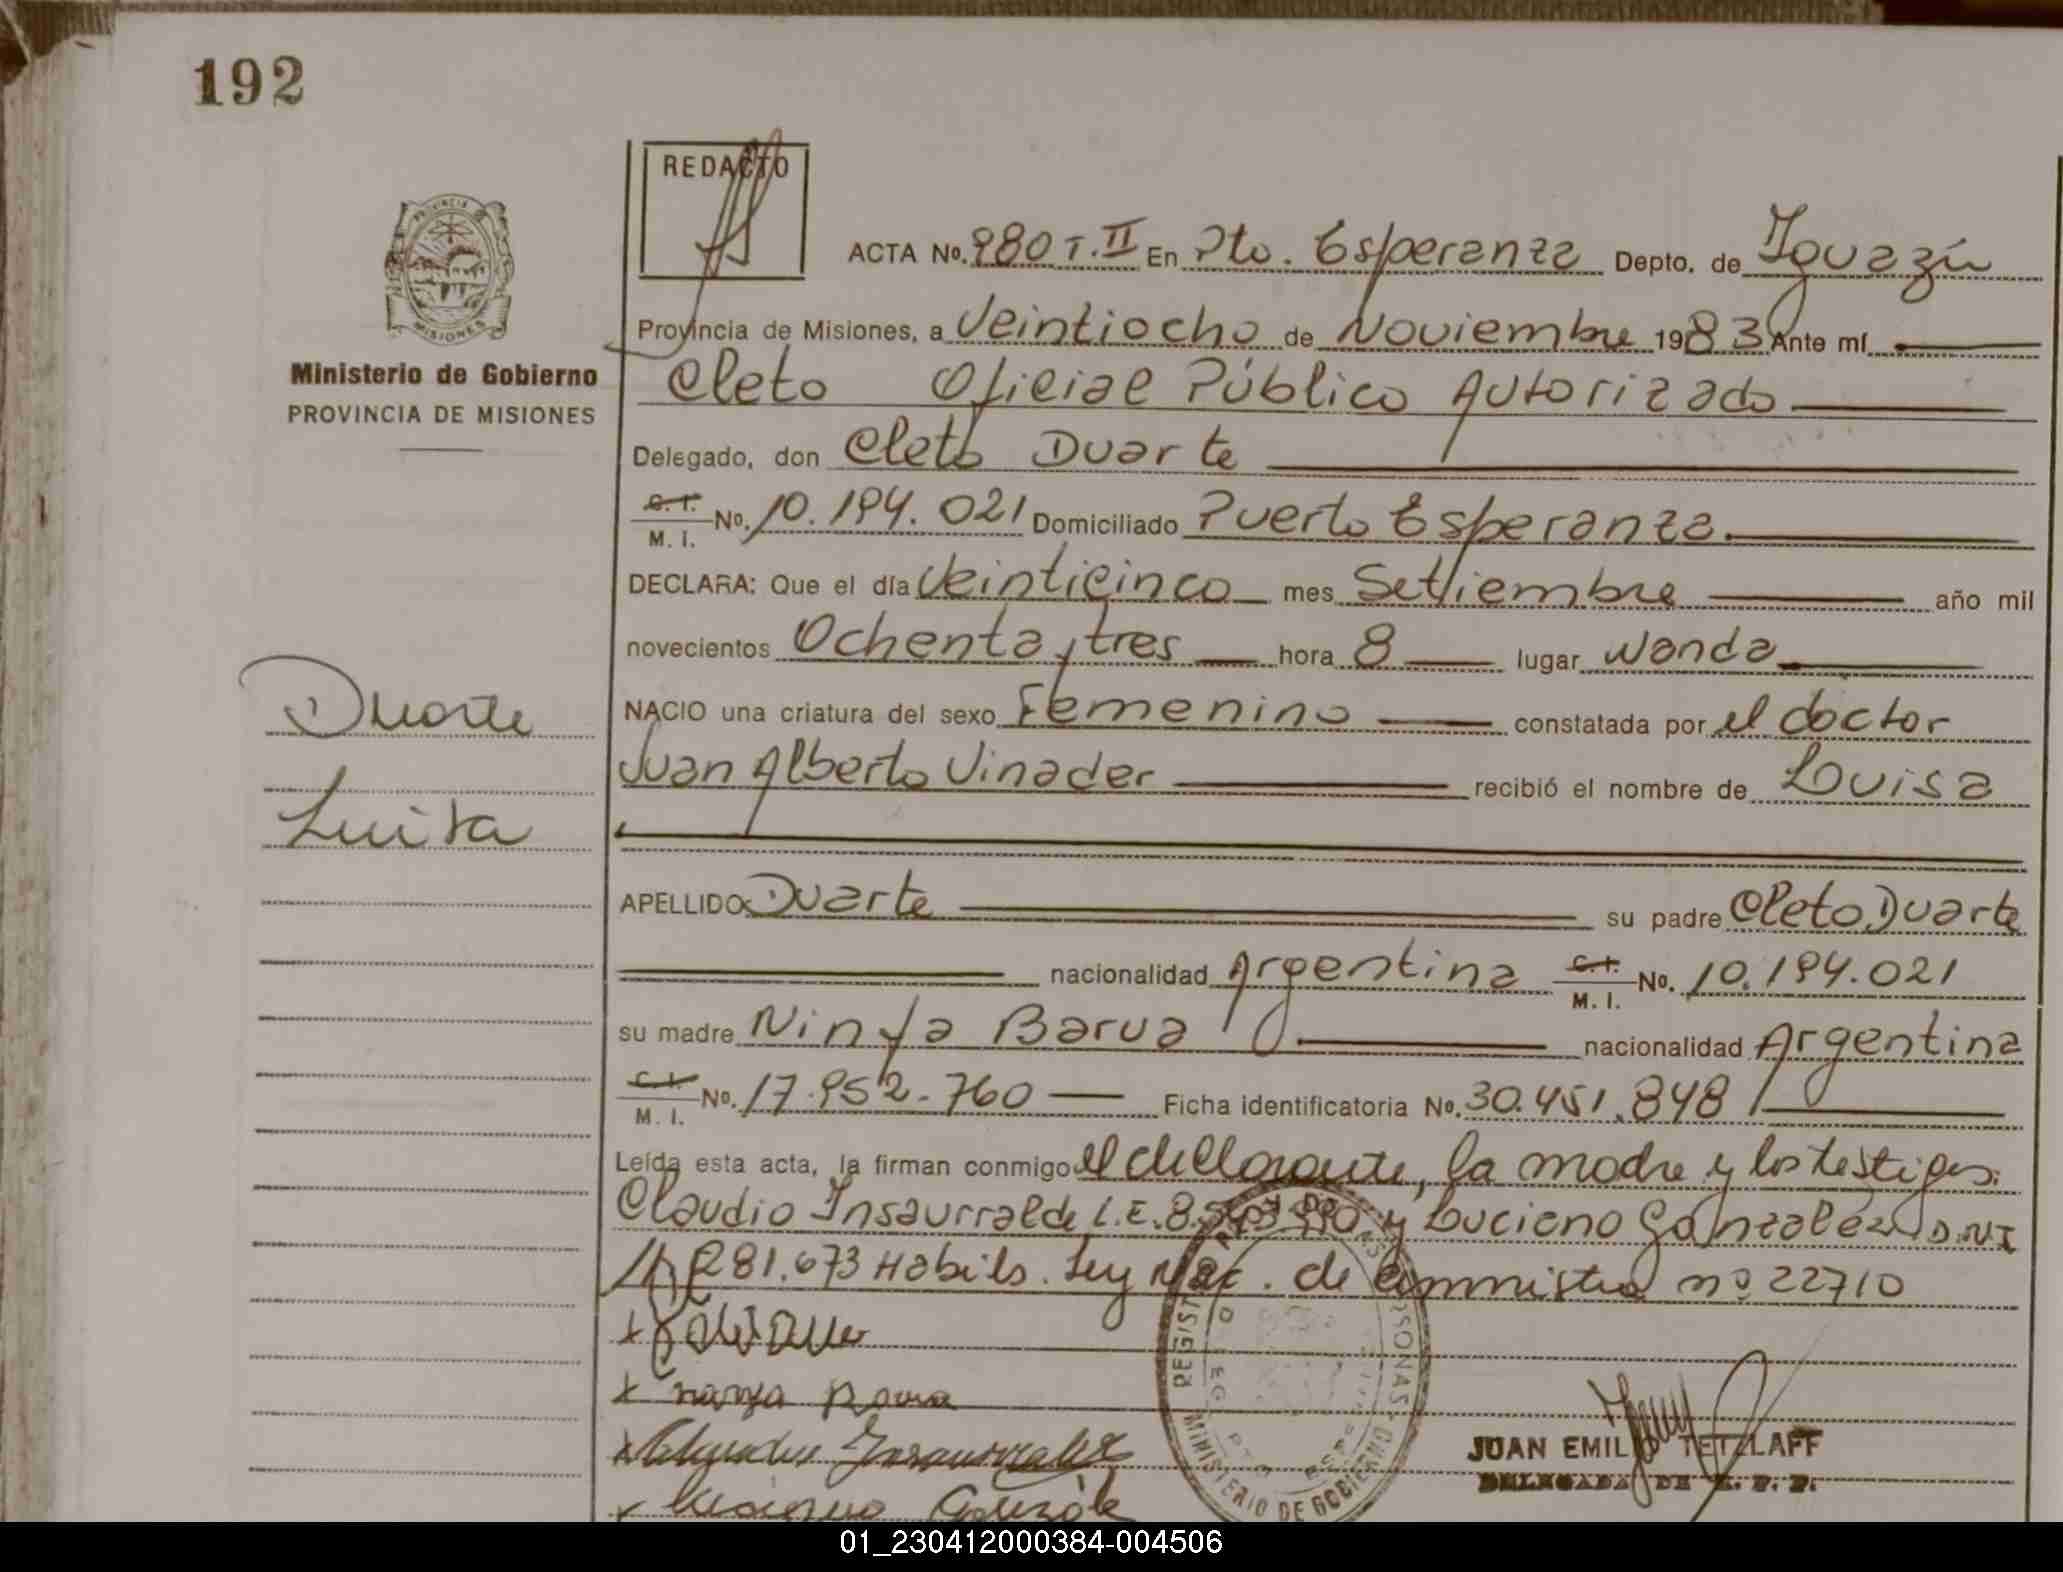 192
REDACTO
PROVINCIA DE
MISIONES
Ministerio de Gobierno
PROVINCIA DE MISIONES
ACTA No. 980 T. II En Pto. Esperanza Depto. de Iguazú
Provincia de Misiones, a Veintiocho de Noviembre 1983 Ante mí
Cleto Oficial Público Autorizado
Delegado, don Cleto Duarte
C. I. M. I. No. 10.194.021 Domiciliado Puerto Esperanza
DECLARA: Que el día Veinticinco mes Setiembre año mil
novecientos Ochenta y tres hora 8 lugar Wanda
Duarte
NACIO una criatura del sexo Femenino constatada por el doctor
Juan Alberto Vinader recibió el nombre de Luisa
Luisa
APELLIDO Duarte su padre Cleto Duarte
nacionalidad Argentina C. I. M. I. No. 10.194.021
su madre Ninfa Barua nacionalidad Argentina
C. I. M. I. No. 17.952.760 Ficha identificatoria No. 30.451.848
Leída esta acta, la firman conmigo el declarante, la madre y los testigos:
Claudio Insaurralde L.E. y Luciano Gonzalez D.N.I
281.673 Habilo. Ley Nac. de ammistia nº 22710
REGISTRO PERSONAS
MINISTERIO DE GOBIERNO
JUAN EMILIO TETZLAFF
DELEGADA DE R. P. P.
Gonzále
01_230412000384-004506